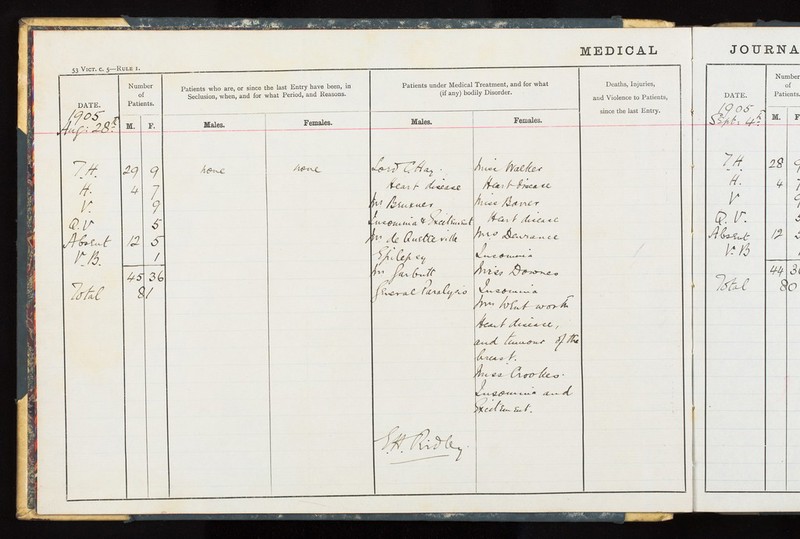 MEDICAL
53 VICT. c. 5—RULE 1.
DATE.
Number of Patients.
M. F.
Patients who are, or since the last Entry have been, in
Seclusion, when, and for what Period, and Reasons.
Males. Females.
Patients under Medical Treatment, and for what
(if any) bodily Disorder.
Males. Females.
Deaths, Injuries,
and Violence to Patients,
since the last Entry.
1905
Aug: 28th
T.H. 29 9 none none
H. 4 7
V. 9
Q.V. 5
Absent 12 5
V.B. 1
45 36
Total 81
Lord C. Hay.
Heart disease
Mr Bruxner
Insomnia & Excitement
Mr de Quetteville
Epilepsy
Mr Garbutt
General Paralysis
Miss Walker
Heart disease
Miss Baner
Heart disease
Mrs Dewrance
Insomnia
Miss Downes
Insomnia
Mrs Wentworth
Heart disease,
and tumour of the
breast.
Miss Crookes.
Insomnia and
Excitement.
S.H. Ridley.
JOURNA
DATE.
Number
of
Patients.
M. F
1905
Sept. 4th
T.H. 28
H. 4
V
Q.V.
Absent 12
V.B
44
Total 80